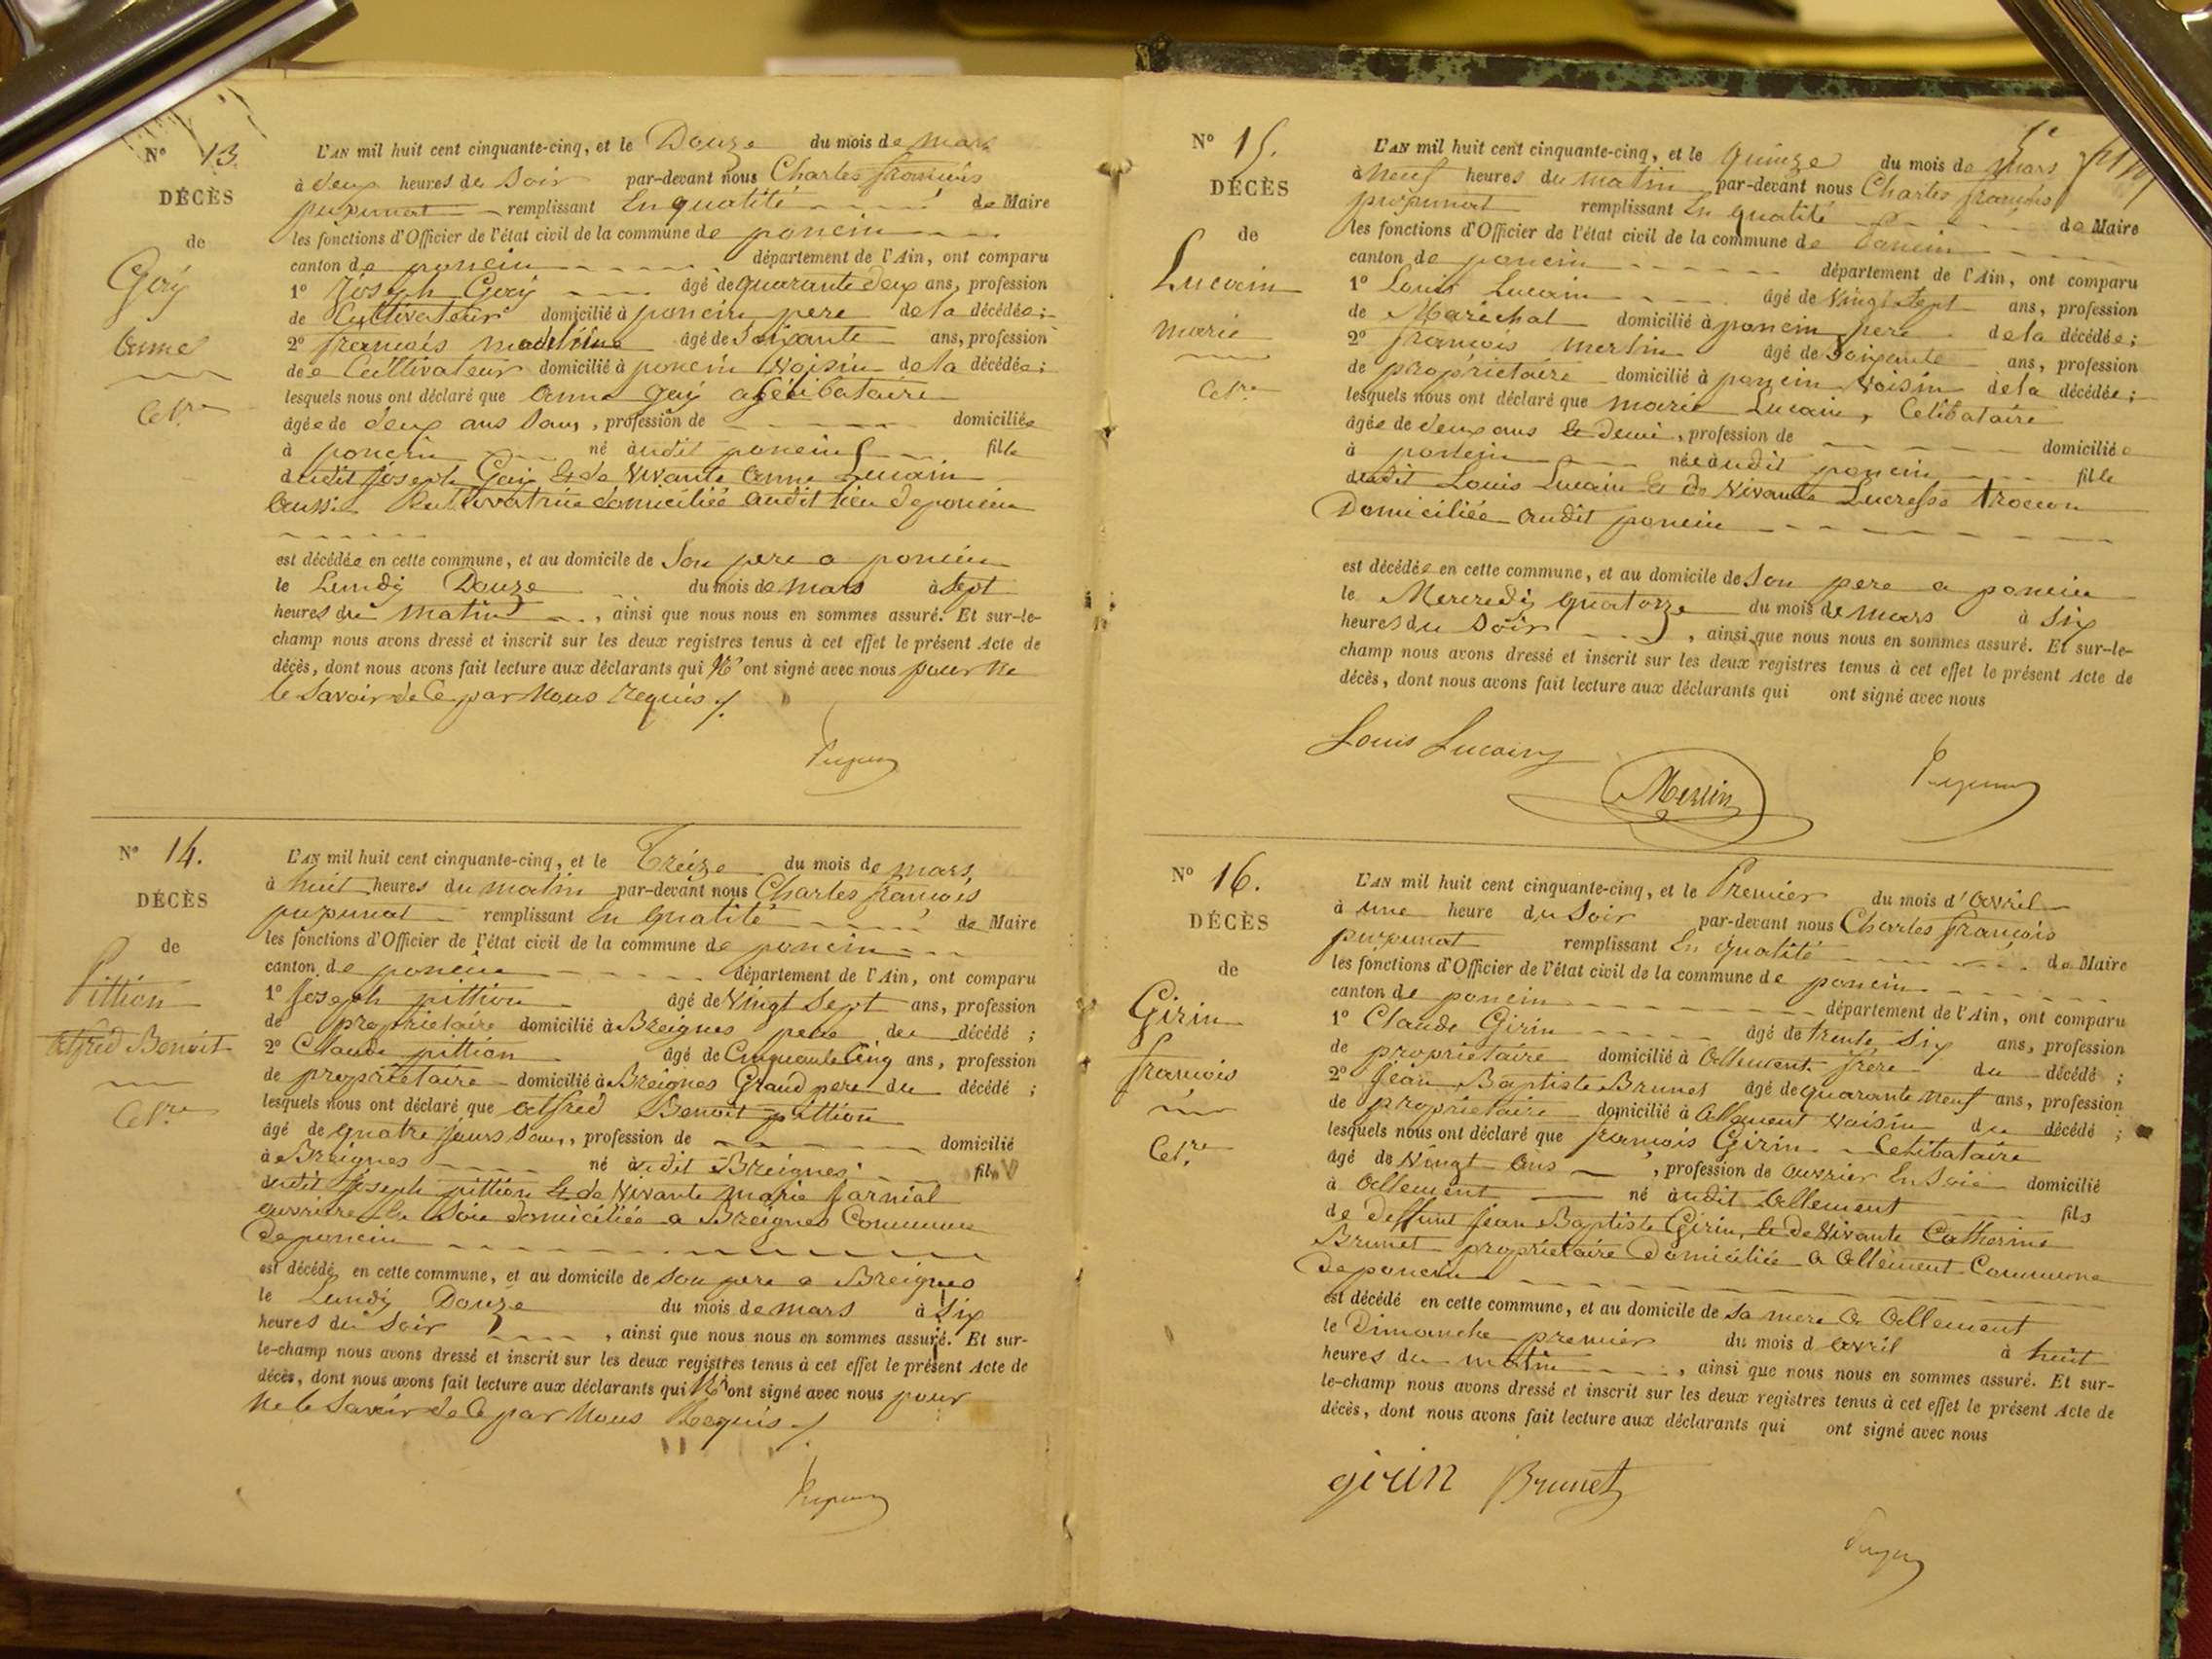 N° 13.
DÉCÈS
de
Goÿ
Anne
Cel.re
L'AN mil huit cent cinquante-cinq, et le Douze du mois de mars
à deux heures du Soir par-devant nous Charles françois
pupunat remplissant En qualité de Maire
les fonctions d'Officier de l'état civil de la commune de poncin
canton de poncin département de l'Ain, ont comparu
1° Joseph Goÿ âgé de quarante deux ans, profession
de Cultivateur domicilié à poncin pere de la décédée;
2° françois âgé de Soixante ans, profession
de Cultivateur domicilié à poncin Voisin de la décédée;
lesquels nous ont déclaré que Anne goÿ Célibataire
âgée de deux ans , profession de domiciliée
à poncin né audit poncin fille
dudit Joseph Goÿ Et de Vivante Anne Lucain
aussi Cultivatrice domiciliée audit lieu de poncin
est décédée en cette commune, et au domicile de Son pere a poncin
le Lundÿ Douze du mois de mars à Sept
heures du matin , ainsi que nous nous en sommes assuré. Et sur-le-
champ nous avons dressé et inscrit sur les deux registres tenus à cet effet le présent Acte de
décès, dont nous avons fait lecture aux déclarants qui N' ont signé avec nous pour ne
le Savoir de Ce par Nous requis
N° 14.
DÉCÈS
de
Pittion
Alfred Benoit
Cel.re
L'AN mil huit cent cinquante-cinq, et le Treize du mois de mars
à huit heures du matin par-devant nous Charles françois
pupunat remplissant En qualité de Maire
les fonctions d'Officier de l'état civil de la commune de poncin
canton de poncin département de l'Ain, ont comparu
1° Joseph pittion âgé de Vingt Sept ans, profession
de propriétaire domicilié à Breignes pere du décédé ;
2° Claude pittion âgé de Cinquante Cinq ans, profession
de propriétaire domicilié à Breignes Grand pere du décédé ;
lesquels nous ont déclaré que Alfred Benoit pittion
âgé de quatre jours , profession de domicilié
à Breignes né audit Breignes fils
dudit Joseph pittion Et de Vivante Marie farnial
ouvriere En Soie domiciliée a Breignes Commune
de poncin
est décédé en cette commune, et au domicile de Son pere a Breignes
le Lundÿ Douze du mois de mars à Six
heures du Soir , ainsi que nous nous en sommes assuré. Et sur-
le-champ nous avons dressé et inscrit sur les deux registres tenus à cet effet le présent Acte de
décès, dont nous avons fait lecture aux déclarants qui N' ont signé avec nous pour
Ne le Savoir de Ce par Nous Requis
N° 15.
DÉCÈS
de
Lucain
marie
Cel.re
L'AN mil huit cent cinquante-cinq, et le quinze du mois de mars
à Neuf heures du matin par-devant nous Charles françois
pupunat remplissant En qualité de Maire
les fonctions d'Officier de l'état civil de la commune de Poncin
canton de poncin département de l'Ain, ont comparu
1° Louis Lucain âgé de Vingt Sept ans, profession
de Maréchal domicilié à poncin pere de la décédée;
2° françois Merlin âgé de Soixante ans, profession
de propriétaire domicilié à poncin Voisin de la décédée;
lesquels nous ont déclaré que marie Lucain, Célibataire
âgée de deux ans Et demi, profession de domiciliée
à poncin née audit poncin fille
dudit Louis Lucain Et de Vivante Lucresse trocon
Domiciliée audit poncin
est décédée en cette commune, et au domicile de Son pere a poncin
le Mercredÿ quatorze du mois de mars à Six
heures du Soir , ainsi que nous nous en sommes assuré. Et sur-le-
champ nous avons dressé et inscrit sur les deux registres tenus à cet effet le présent Acte de
décès, dont nous avons fait lecture aux déclarants qui ont signé avec nous
Louis Lucain
Merlin
N° 16.
DÉCÈS
de
Girin
françois
Cel.re
L'AN mil huit cent cinquante-cinq, et le Premier du mois d'avril
à une heure du Soir par-devant nous Charles françois
pupunat remplissant En qualité de Maire
les fonctions d'Officier de l'état civil de la commune de poncin
canton de poncin département de l'Ain, ont comparu
1° Claude Girin âgé de trente Six ans, profession
de propriétaire domicilié à Allement frere du décédé ;
2° Jean Baptiste Brunet âgé de quarante neuf ans, profession
de propriétaire domicilié à Allement Voisin du décédé ;
lesquels nous ont déclaré que françois Girin Celibataire
âgé de Vingt Ans , profession de ouvrier En Soie domicilié
à Allement né audit Allement fils
de Deffunt Jean Baptiste Girin, Et de Vivante Catherine
Brunet propriétaire Domiciliée a Allement Commune
de poncin
est décédé en cette commune, et au domicile de sa mere a Allement
le Dimanche premier du mois d avril à huit
heures du matin , ainsi que nous nous en sommes assuré. Et sur-
le-champ nous avons dressé et inscrit sur les deux registres tenus à cet effet le présent Acte de
décès, dont nous avons fait lecture aux déclarants qui ont signé avec nous
girin Brunet